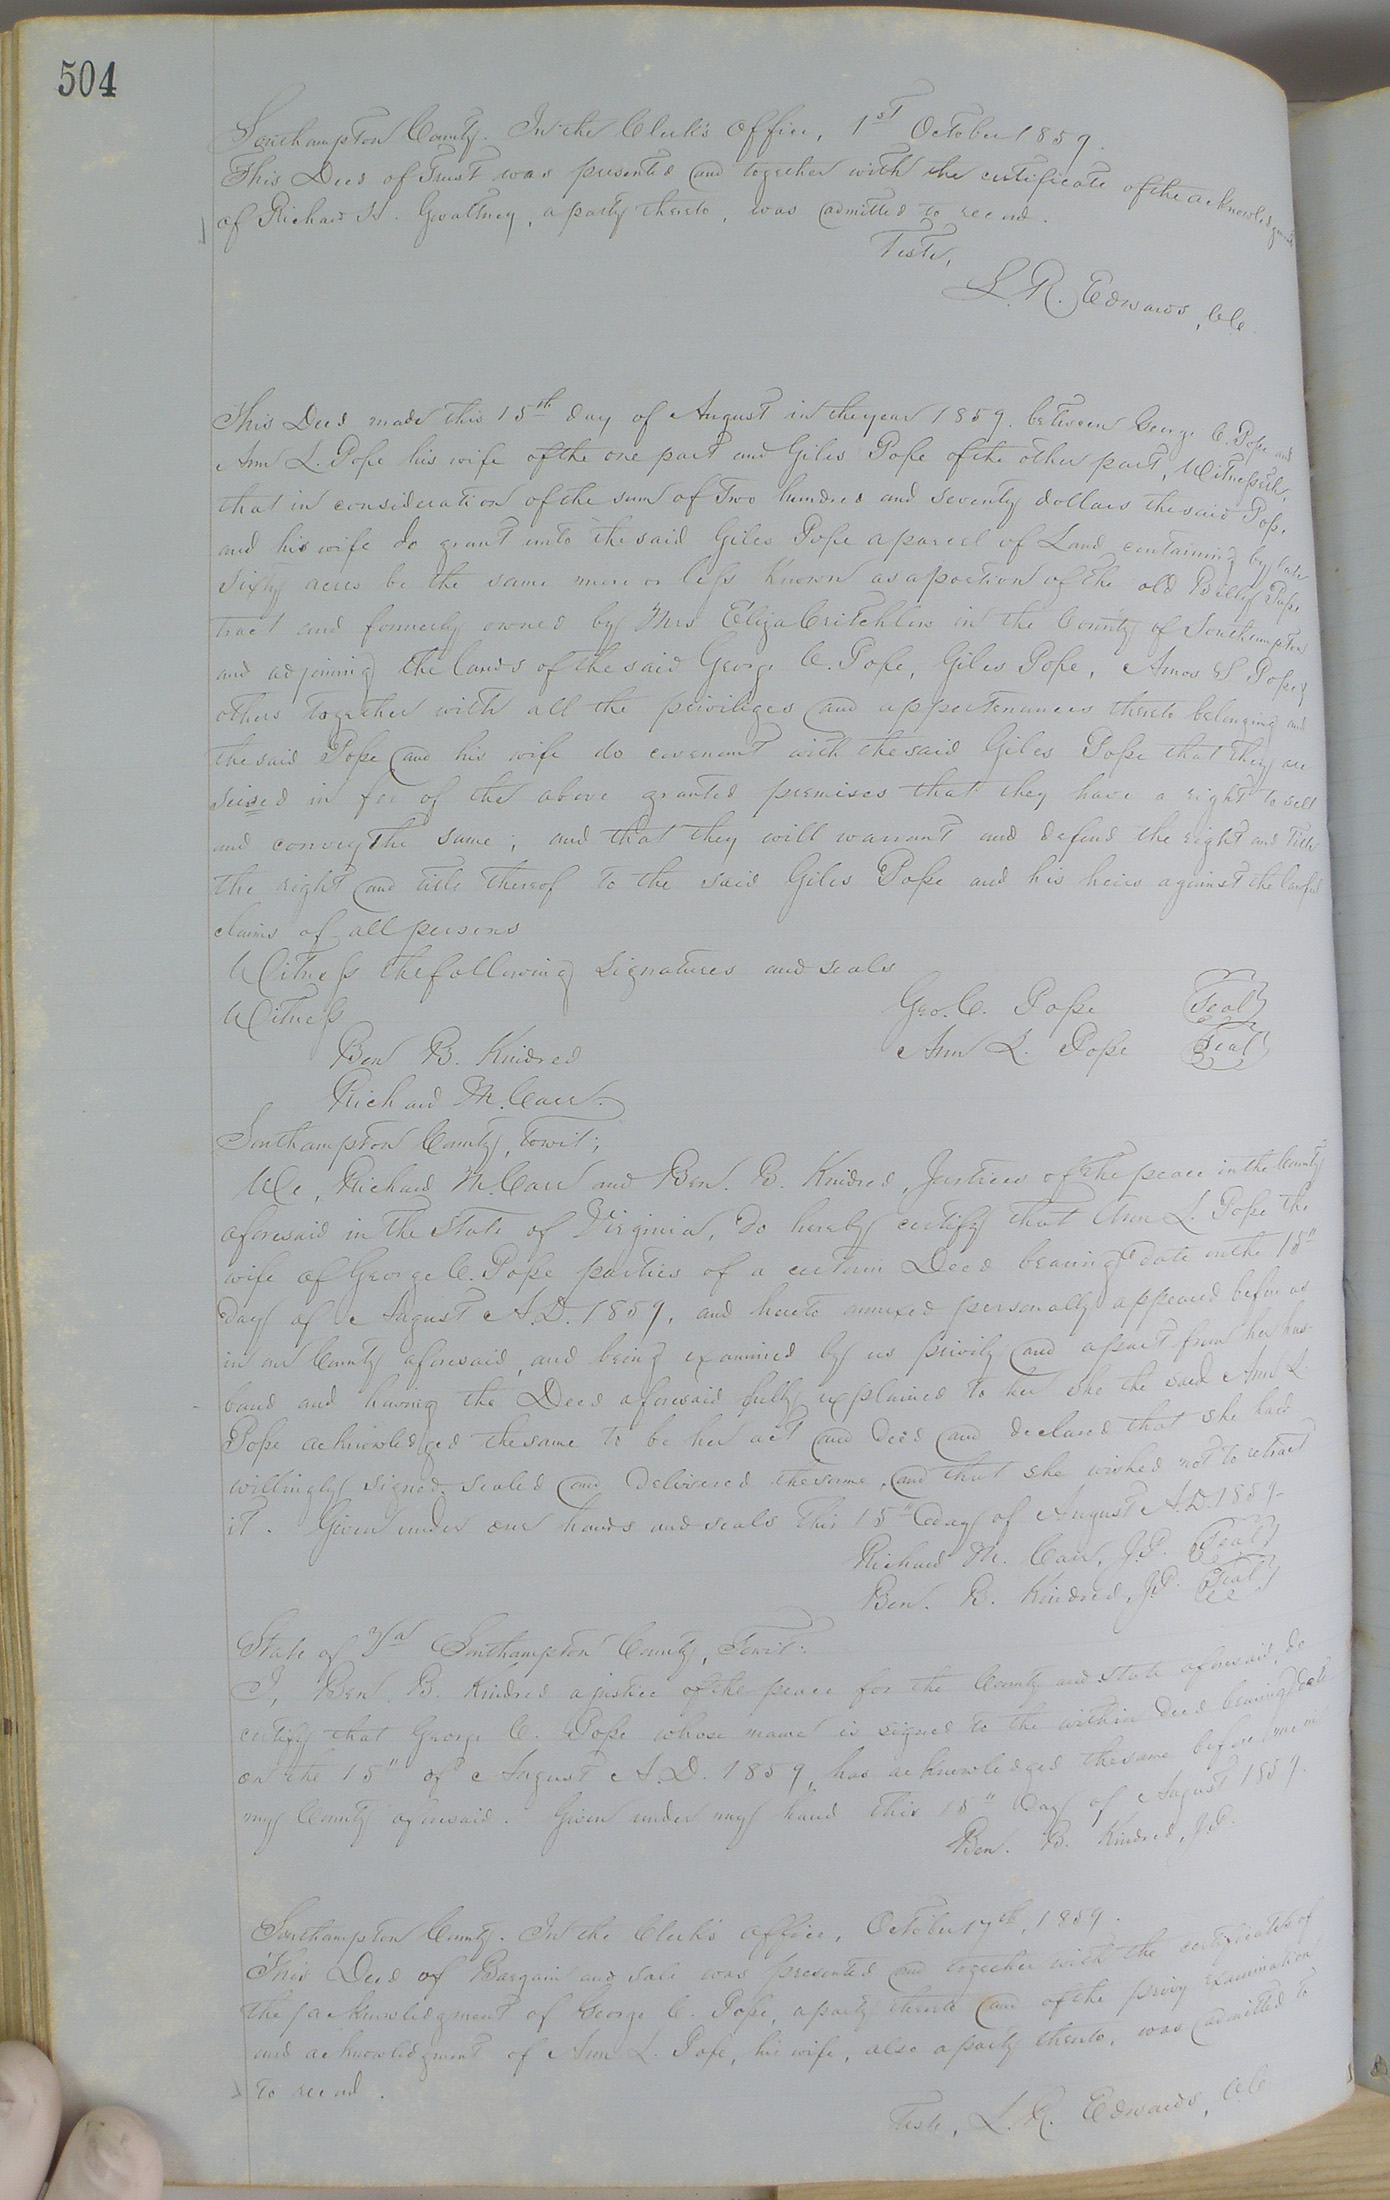 504
Southampton County. In the Clerk's office, 1st October 1859.
This Deed of Trust was presented and together with the certificate of the acknowledgment
of Richard H. Gwaltney, a party thereto, was admitted to record.
Teste,
L. R. Edwards, Cl C
This Deed made this 15th day of August in the year 1859. between George C. Pope and
Ann L. Pope his wife of the one part and Giles Pope of the other part, Witnesseth,
that in consideration of the sum of Two hundred and seventy dollars the said Pope
and his wife do grant unto the said Giles Pope a parcel of Land containing by
Sixty acres be the same more or less Known as a portion of the old Billy Pope
tract and formerly owned by Mrs Eliza Critchlow in the County of Southampton
and adjoining the lands of the said George C. Pope, Giles Pope, Amos S Pope &
others together with all the priviliges and appertenances thereto belonging and
the said Pope and his wife do covenant with the said Giles Pope that they are
Seised in fee of the above granted premises that they have a right to sell
and convey the same; and that they will warrant and defend the right and title
the right and title thereof to the said Giles Pope and his heirs against the lawful
claims of all persons
Witness the following signatures and seals
Witness
Geo. C. Pope Seal
Ben B. Kindred
Ann L. Pope Seal
Richard M. Carr.
Southampton County, towit;
We, Richard M. Carr and Ben. B. Kindred, Justices of the peace in the County
aforesaid in the State of Virginia, do hereby certify that Ann L. Pope the
wife of George C. Pope parties of a certain Deed bearing date on the 15"
day of August A.D. 1859, and hereto annexed personally appeared before us
in our County aforesaid, and being examined by us privily and apart from her hus-
band and having the Deed aforesaid fully explained to her she the said Ann L.
Pope acknowledged the same to be her act and deed and declared that she had
willingly signed, sealed and delivered the same, and that she wished not to retract
it. Given under our hands and seals this 15" day of August A.D. 1859-
Richard M. Carr, J.P. Seal
Ben. B. Kindred, J.P. Seal
State of Va Southampton County, Towit:
I, Ben. B. Kindred a justice of the peace for the County and State aforesaid, do
certify that George C. Pope whose name is signed to the within deed bearing date
on the 15" of August A.D. 1859, has acknowledged the same before me in
my County aforesaid. Given under my hand this 15" day of August 1859.
Ben. B. Kindred, J.P.
Southampton County. In the Clerk's office, October 17th, 1859.
This Deed of Bargain and sale was presented and together with the certificates of
the acknowledgment of George C. Pope, a party thereto and of the privy examination
and acknowledgment of Ann L. Pope, his wife, also a party thereto, was admitted to
to record.
Teste, L. R. Edwards, Cl C